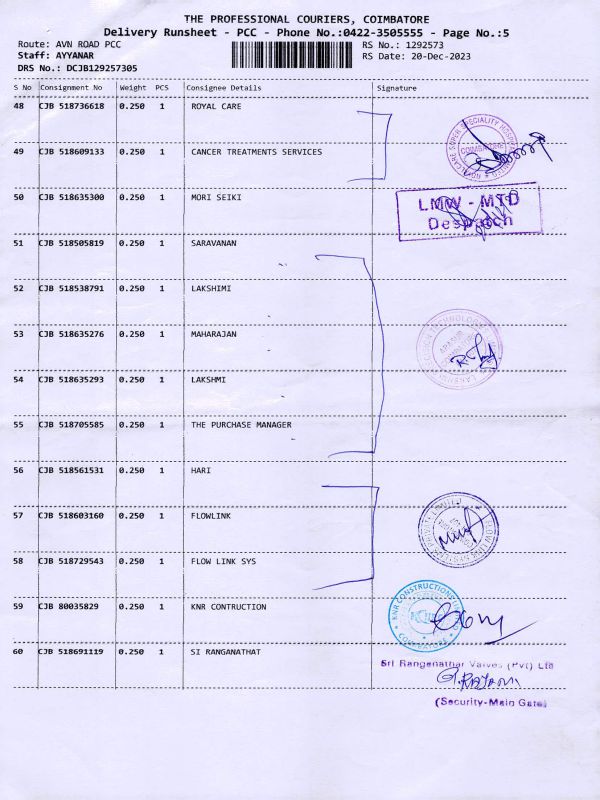 THE PROFESSIONAL COURIERS, COIMBATORE
Delivery Runsheet - PCC - Phone No.:0422-3505555 - Page No.:5
Route: AVN ROAD PCC RS No.: 1292573
Staff: AYYANAR RS Date: 20-Dec-2023
DRS No.: DCJB129257305
S No Consignment No Weight PCS Consignee Details Signature
48 CJB 518736618 0.250 1 ROYAL CARE
49 CJB 518609133 0.250 1 CANCER TREATMENTS SERVICES
50 CJB 518635300 0.250 1 MORI SEIKI
LMW - MTD
Despatch
51 CJB 518505819 0.250 1 SARAVANAN
52 CJB 518538791 0.250 1 LAKSHIMI
53 CJB 518635276 0.250 1 MAHARAJAN
54 CJB 518635293 0.250 1 LAKSHMI
55 CJB 518705585 0.250 1 THE PURCHASE MANAGER
56 CJB 518561531 0.250 1 HARI
57 CJB 518603160 0.250 1 FLOWLINK
58 CJB 518729543 0.250 1 FLOW LINK SYS
59 CJB 80035829 0.250 1 KNR CONTRUCTION
60 CJB 518691119 0.250 1 SI RANGANATHAT
Sri Ranganathar Valves (Pvt) Ltd
(Security-Main Gate)